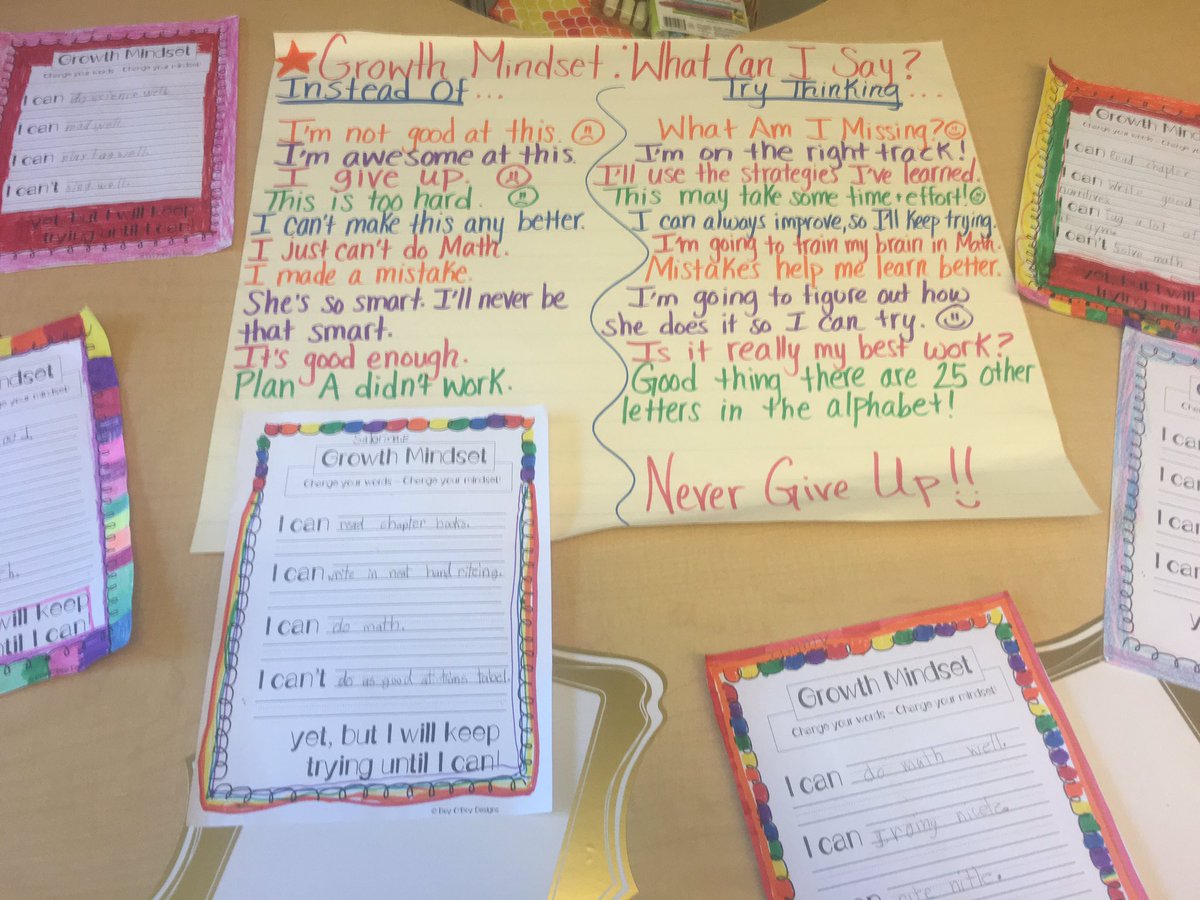 Growth Mindset: What Can I Say?
Instead Of...
I'm not good at this.
I'm awesome at this.
I give up.
This is too hard.
I can't make this any better.
I Just can't do Math.
I made a mistake.
She's so smart. I'll never be
that smart.
It's good enough.
Plan A didn't work.
Try Thinking...
What Am I Missing?
I'm on the right track!
I'll use the strategies I've learned.
This may take some time + effort!
I can always improve, so I'll keep trying.
I'm going to train my brain in Math.
Mistakes help me learn better.
I'm going to figure out how
she does it so I can try.
Is it really my best work?
Good thing there are 25 other
letters in the alphabet!
Never Give Up!!
Growth Mindset
Change your words - Change your mindset!
I can do science well.
I can read well.
I can
I can't
yet, but I will keep
trying until I can!
Growth Mind
Change your words - Change your
I can Read chapter
I can write good
I can tag a lot of
gym
I can't solve math
yet, but I will
trying until
Mindset
Change your mindset!
will keep
until I can!
Growth Mindset
Change your words - Change your mindset!
I can read chapter books.
I can write in neat hand
I can do math.
I can't do as good at tims tabel.
yet, but I will keep
trying until I can!
Growth Mindset
Change your words - Change your mindset!
I can do math well.
I can
I can
I can
I can
I can